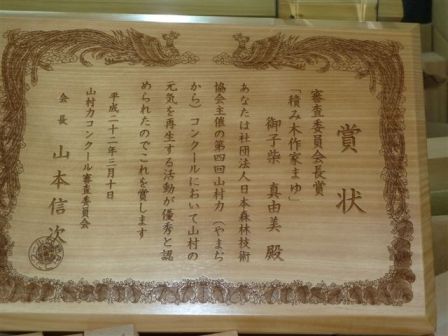 賞状
審査委員会長賞
「積み木作家まゆ」
御子柴 真由美 殿
あなたは社団法人日本森林技術
協会主催の第四回山村力(やまぢ
から)コンクールにおいて山村の
元気を再生する活動が優秀と認
められたのでこれを賞します
平成二十二年三月十日
山村力コンクール審査委員会
会長 山本信次